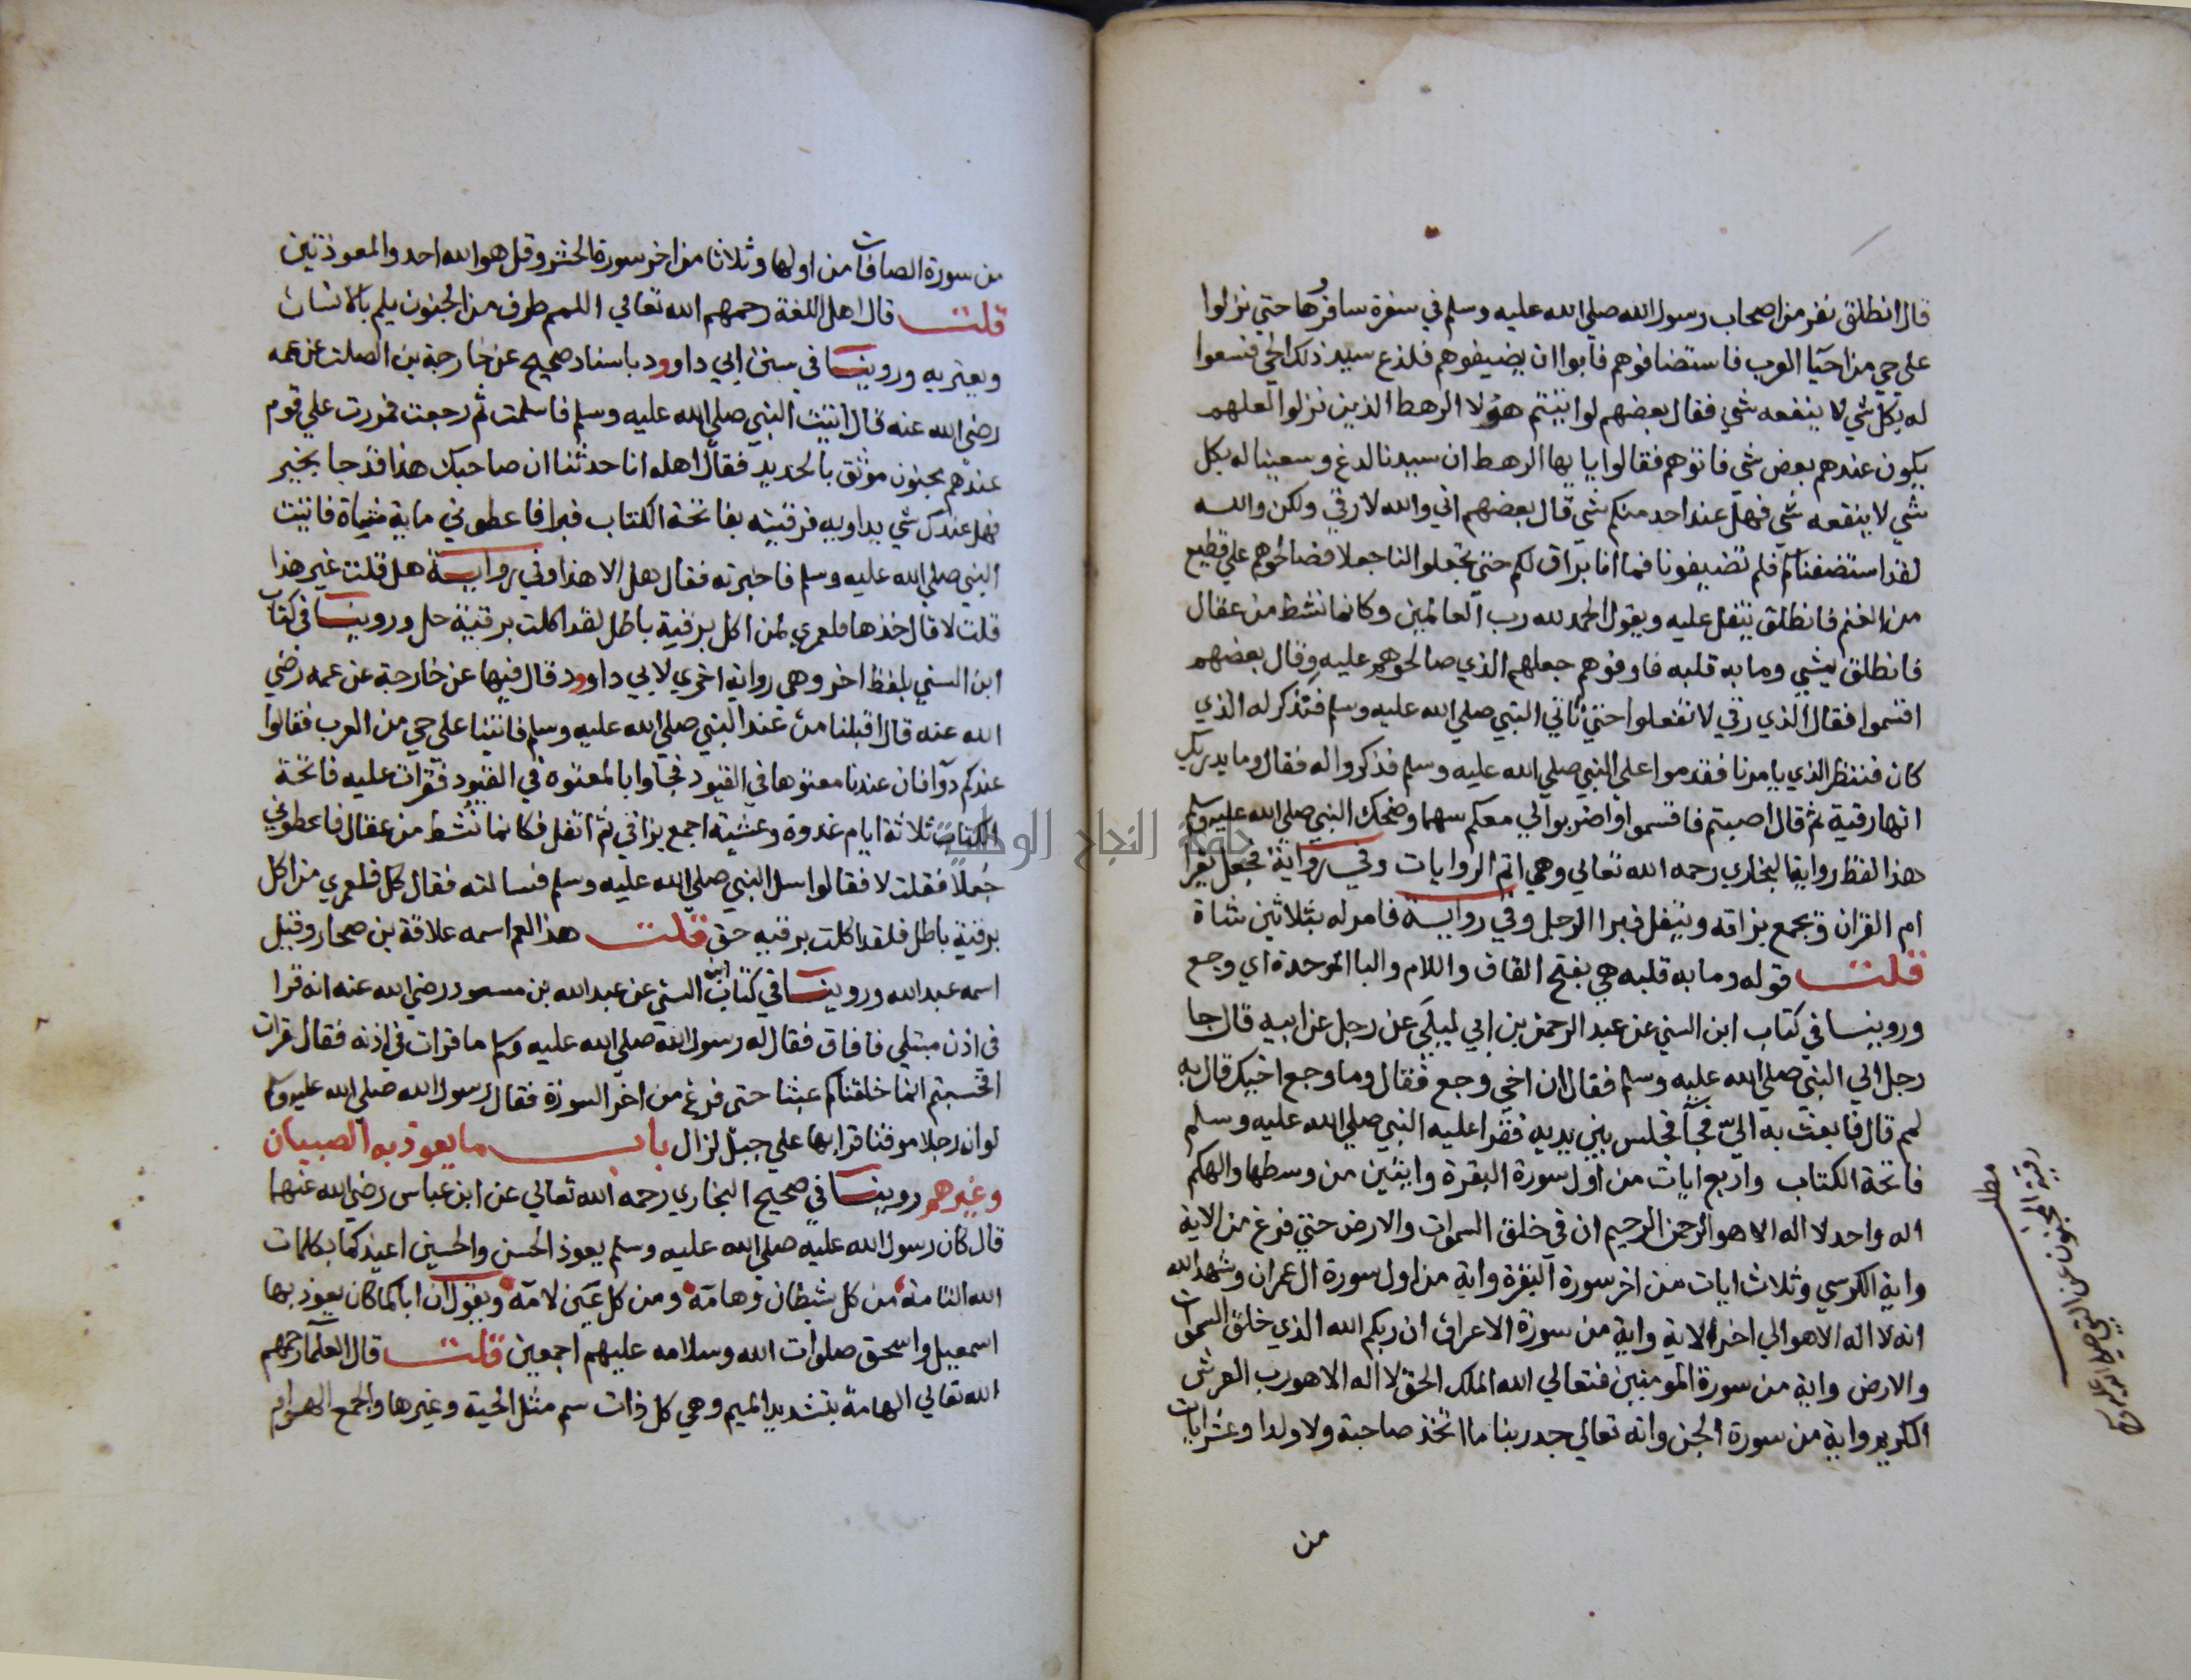 قال انطلق نفر من اصحاب رسول الله صلي الله عليه وسلم في سفرة سافروها حتي نزلوا
علي حي من احيآ العرب فاستضافوهم فابوا ان يضيفوهم فلدغ سيد ذلك الحي فسعوا
له بكل شي لا ينفعه شي فقال بعضهم لو اتيتم هؤلا الرهط الذين نزلوا لعلهم
يكون عندهم بعض شي فاتوهم فقالوا يا يها الرهط ان سيدنا لدغ وسعينا له بكل
شي لا ينفعه شي فهل عند احد منكم شي قال بعضهم اني والله لارقي ولكن والله
لقد استضفناكم فلم تضيفونا فما انا براق لكم حتي تجعلوا لنا جعلا فصالحوهم علي قطيع
من الغنم فانطلق يتفل عليه ويقول الحمد لله رب العالمين وكانما نشط من عقال
فانطلق يمشي وما به قلبه فاوفوهم جعلهم الذي صالحوهم عليه وقال بعضهم
اقتسموا فقال الذي رقي لا تفعلوا حتي ناتي النبي صلي الله عليه وسلم فنذكر له الذي
كان فننظر الذي يامرنا فقدموا علي النبي صلي الله عليه وسلم فذكروا له فقال وما يدريك
انها رقية ثم قال اصبتم فاقسموا واضربوا لي معكم سهما وضحك النبي صلي الله عليه وسلم
هذا لفظ رواية البخاري رحمه الله تعالي وهي اتم الروايات وفي رواية فجعل يقرا
ام القران ويجمع بزاقه ويتفل فبرا الرجل وفي رواية فامر له بثلاثين شاة
قلت قوله وما به قلبه هي بفتح القاف واللام والبا الموحدة اي وجع
وروينا في كتاب ابن السني عن عبد الرحمن بن ابي ليلي عن رجل عن ابيه قال جا
رجل الي النبي صلي الله عليه وسلم فقال ان اخي وجع فقال وما وجع اخيك قال به
لمم قال فابعث به اليّ فجآ فجلس بين يديه فقرا عليه النبي صلي الله عليه وسلم
فاتحة الكتاب واربع ايات من اول سورة البقرة وايتين من وسطها والهكم
اله واحد لا اله الا هو الرحمن الرحيم ان في خلق السموات والارض حتي فرغ من الاية
واية الكرسي وثلاث ايات من اخر سورة البقرة واية من اول سورة ال عمران وشهد الله
انه لا اله الا هو الي اخر الاية واية من سورة الاعراف ان ربكم الله الذي خلق السموات
والارض واية من سورة المومنين فتعالي الله الملك الحق لا اله الا هو رب العرش
الكريم واية من سورة الجن وانه تعالي جد ربنا ما اتخذ صاحبة ولا ولدا وعشر ايات
من
مطلب
رقية المجنون عن النبي صلي الله عليه وسلم
من سورة الصافات من اولها وثلاثا من اخر سورة الحشر وقل هو الله احد والمعوذتين
قلت قال اهل اللغة رحمهم الله تعالي اللمم طرف من الجنون يلم بالانسان
ويعتريه وروينا في سنن ابي داوود باسناد صحيح عن خارجة بن الصلت عن عمه
رضي الله عنه قال اتيت النبي صلي الله عليه وسلم فاسلمت ثم رجعت فمررت علي قوم
عندهم مجنون موثق بالحديد فقال اهله انا حدثنا ان صاحبك هذا قد جا بخير
فهل عندك شي يداويه فرقيته بفاتحة الكتاب فبرا فاعطوني ماية شاة فاتيت
النبي صلي الله عليه وسلم فاخبرته فقال هل الا هذا وفي رواية هل قلت غير هذا
قلت لا قال خذها فلعمري لمن اكل برقية باطل لقد اكلت برقية حل وروينا في كتاب
ابن السني بلفظ اخر وهي رواية اخري لابي داوود قال فيها عن خارجة عن عمه رضي
الله عنه قال اقبلنا من عند النبي صلي الله عليه وسلم فاتينا علي حي من العرب فقالوا
عندكم دوآ فان عندنا معتوها في القيود فجاوا بالمعتوه في القيود فقرات عليه فاتحة
الكتاب ثلاثة ايام غدوة وعشية اجمع بزاقي ثم اتفل فكانما نشط من عقال فاعطوني
جعلا فقلت لا فقالوا سل النبي صلي الله عليه وسلم فسالته فقال كل فلعمري من اكل
برقية باطل فلقد اكلت برقيه حق قلت هذا العم اسمه علاقة بن صحار وقيل
اسمه عبد الله وروينا في كتاب ابن السني عن عبد الله بن مسعود رضي الله عنه انه قرا
في اذن مبتلي فافاق فقال له رسول الله صلي الله عليه وسلم ما قرات في اذنه فقال قرات
افحسبتم انما خلقناكم عبثا حتي فرغ من اخر السورة فقال رسول الله صلي الله عليه وسلم
لو ان رجلا موقنا قرا بها علي جبل لزال باب ما يعوذ به الصبيان
وغيرهم روينا في صحيح البخاري رحمه الله تعالي عن ابن عباس رضي الله عنهما
قال كان رسول الله عليه صلي الله عليه وسلم يعوذ الحسن والحسين اعيذكما بكلمات
الله التامة من كل شيطان وهامة ومن كل عين لامة ويقول ان اباكما كان يعوذ بها
اسمعيل واسحق صلوات الله وسلامه عليهم اجمعين قلت قال العلمآ رحمهم
الله تعالي الهامة بتشديد الميم وهي كل ذات سم مثل الحية وغيرها والجمع الهوام
جامعة النجاح الوطنية